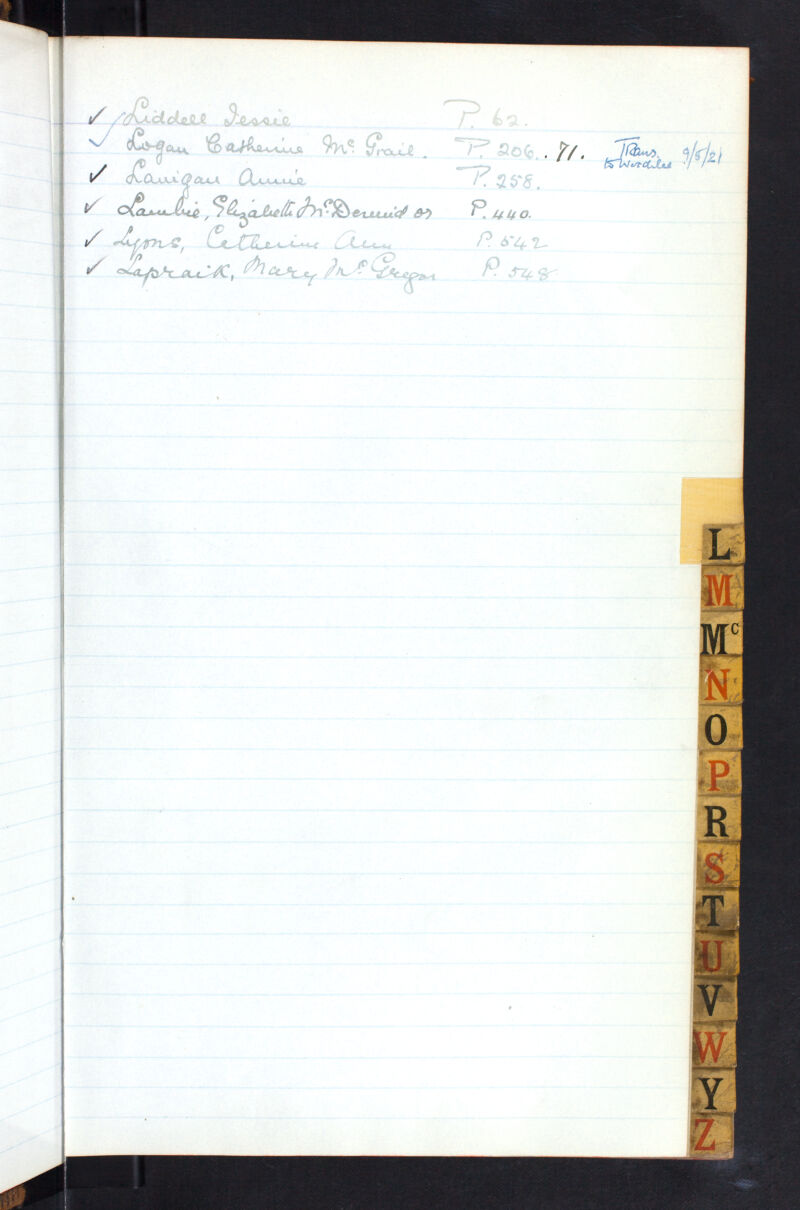 ✓ Liddell Jessie P. 62.
✓ Logan Catherine Mc Grail. P. 206. . 71. Trans. to 9/5/21
✓ Lanigan Annie P. 258.
✓ Lambie, Elizabeth Mc Dermid or P. 440.
✓ Lyons, Catherine Ann P. 542
✓ Lapraik, Mary Mc Gregor P. 548
L
M
Mc
N
O
P
R
S
T
U
V
W
Y
Z